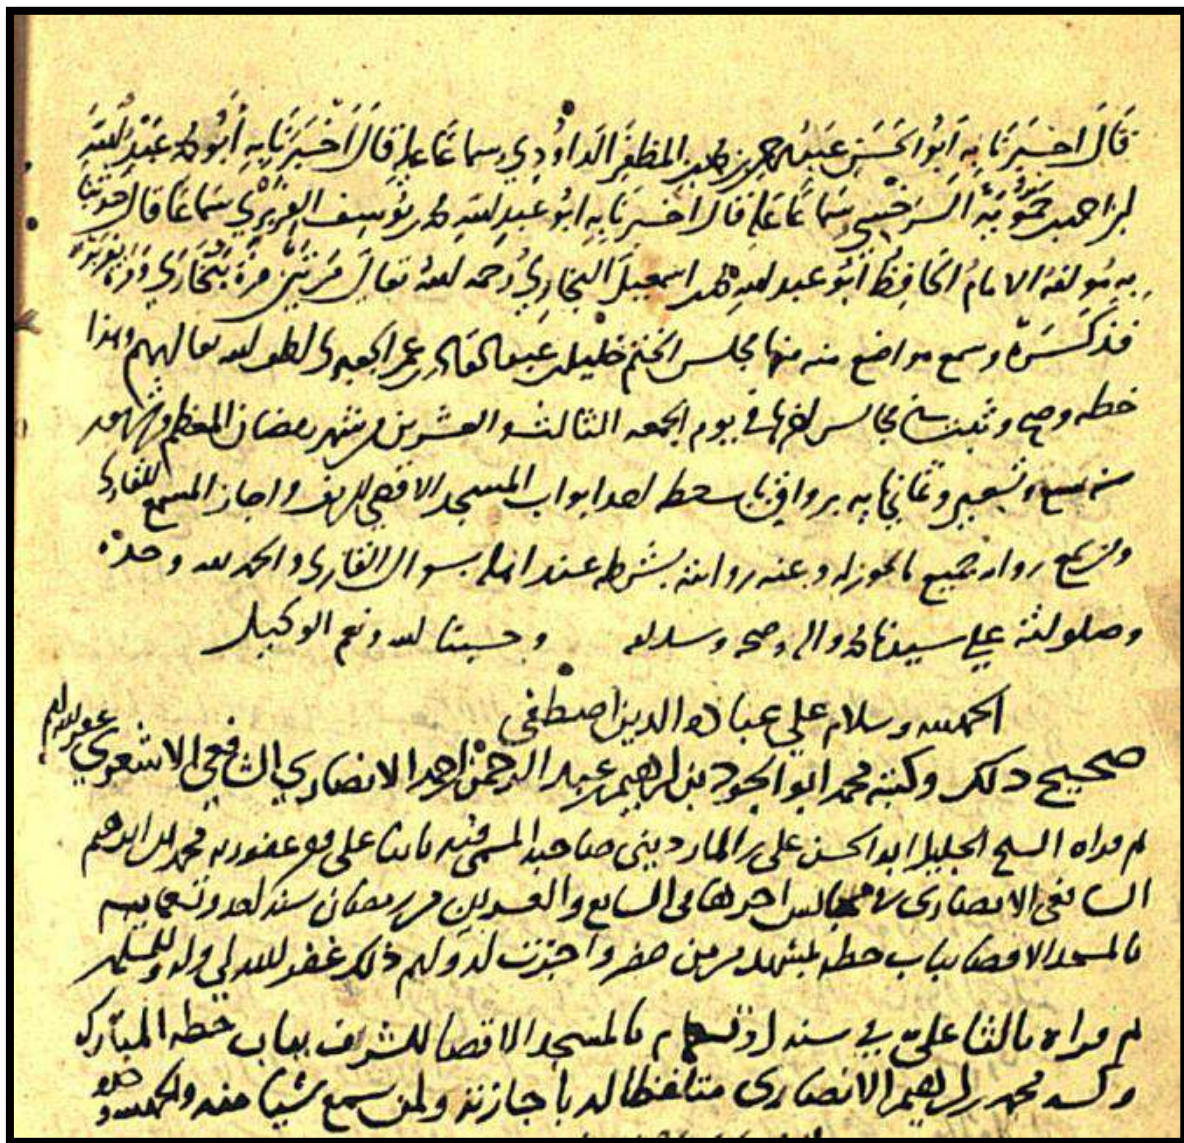 قَالَ اخبرَنَا بِهِ اَبُو الحَسَن عَبد الرحمن بن محمد بن المظفر الدَاوُدِي سماعًا عليه قَالَ اَخْبَرَنَا بِهِ اَبُو محمد عَبْد اللهِ
بن احمد بن حَمُّويَة السرخسي سَمَاعًا عَليه قال اخبرنا بِهِ ابُو عَبدِ اللهِ محمد بن يُوسف الفِرَبْرِي سَمَاعًا قال حدثنا
بِهِ مُولفهُ الامامُ الحَافِظُ اَبُو عبد الله محمد بن اسمعيلَ البُخاريُ رحمه اللهُ تعَالَى مَرَّتَيْن مرةً بِبُخَارَى وَمرة بِفِرَبْر
فذكَرَهُ وسمع مواضع منه منها مجلس الختم خليل بن عبد القادر بن عمر الجعبري لطف الله تعالى بهم وهذا
خطه وصح وثبت في مجالس اخرها في يوم الجمعه الثالث والعشرين من شهر رمضان المعظم
سنه وتسعين وثمانمايه برواق باب حطه احد ابواب المسجد الاقصى الشريف واجاز المسمع للقارى
ولمن سمع روايه جميع ما يجوز له وعنه روايته بشرطه عند اهله بسوال القارى والحمد لله وحده
وصلواته على سيدنا محمد واله وصحبه وسلم وحسبنا الله ونعم الوكيل
الحمد لله وسلام على عباده الذين اصطفى
صحيح ذلك وكتبه محمد ابو الجود بن ابراهيم بن عبد الرحمن الانصاري الشافعي الاشعري عفو الله
ثم قراه الشيخ الجليل ابو الحسن علي بن المارديني صاحب المسمى فيه ثانيا على فقير عفو ربه محمد بن ابراهيم
الشافعي الانصاري في مجالس اخرها في السابع والعشرين من رمضان سنه احد وتسعمايه
بالمسجد الاقصا بباب حطه بمشهد من من حضر واجزت له ولهم ذلك غفر الله لي وله وللمسلمين
ثم قراه ثالثا علي في سنه بالمسجد الاقصا الشريف بباب حطه المباركه
وكتبه محمد بن ابراهيم الانصاري متلفظا له باجازته ولمن سمع شيا منه والحمد لله وحده